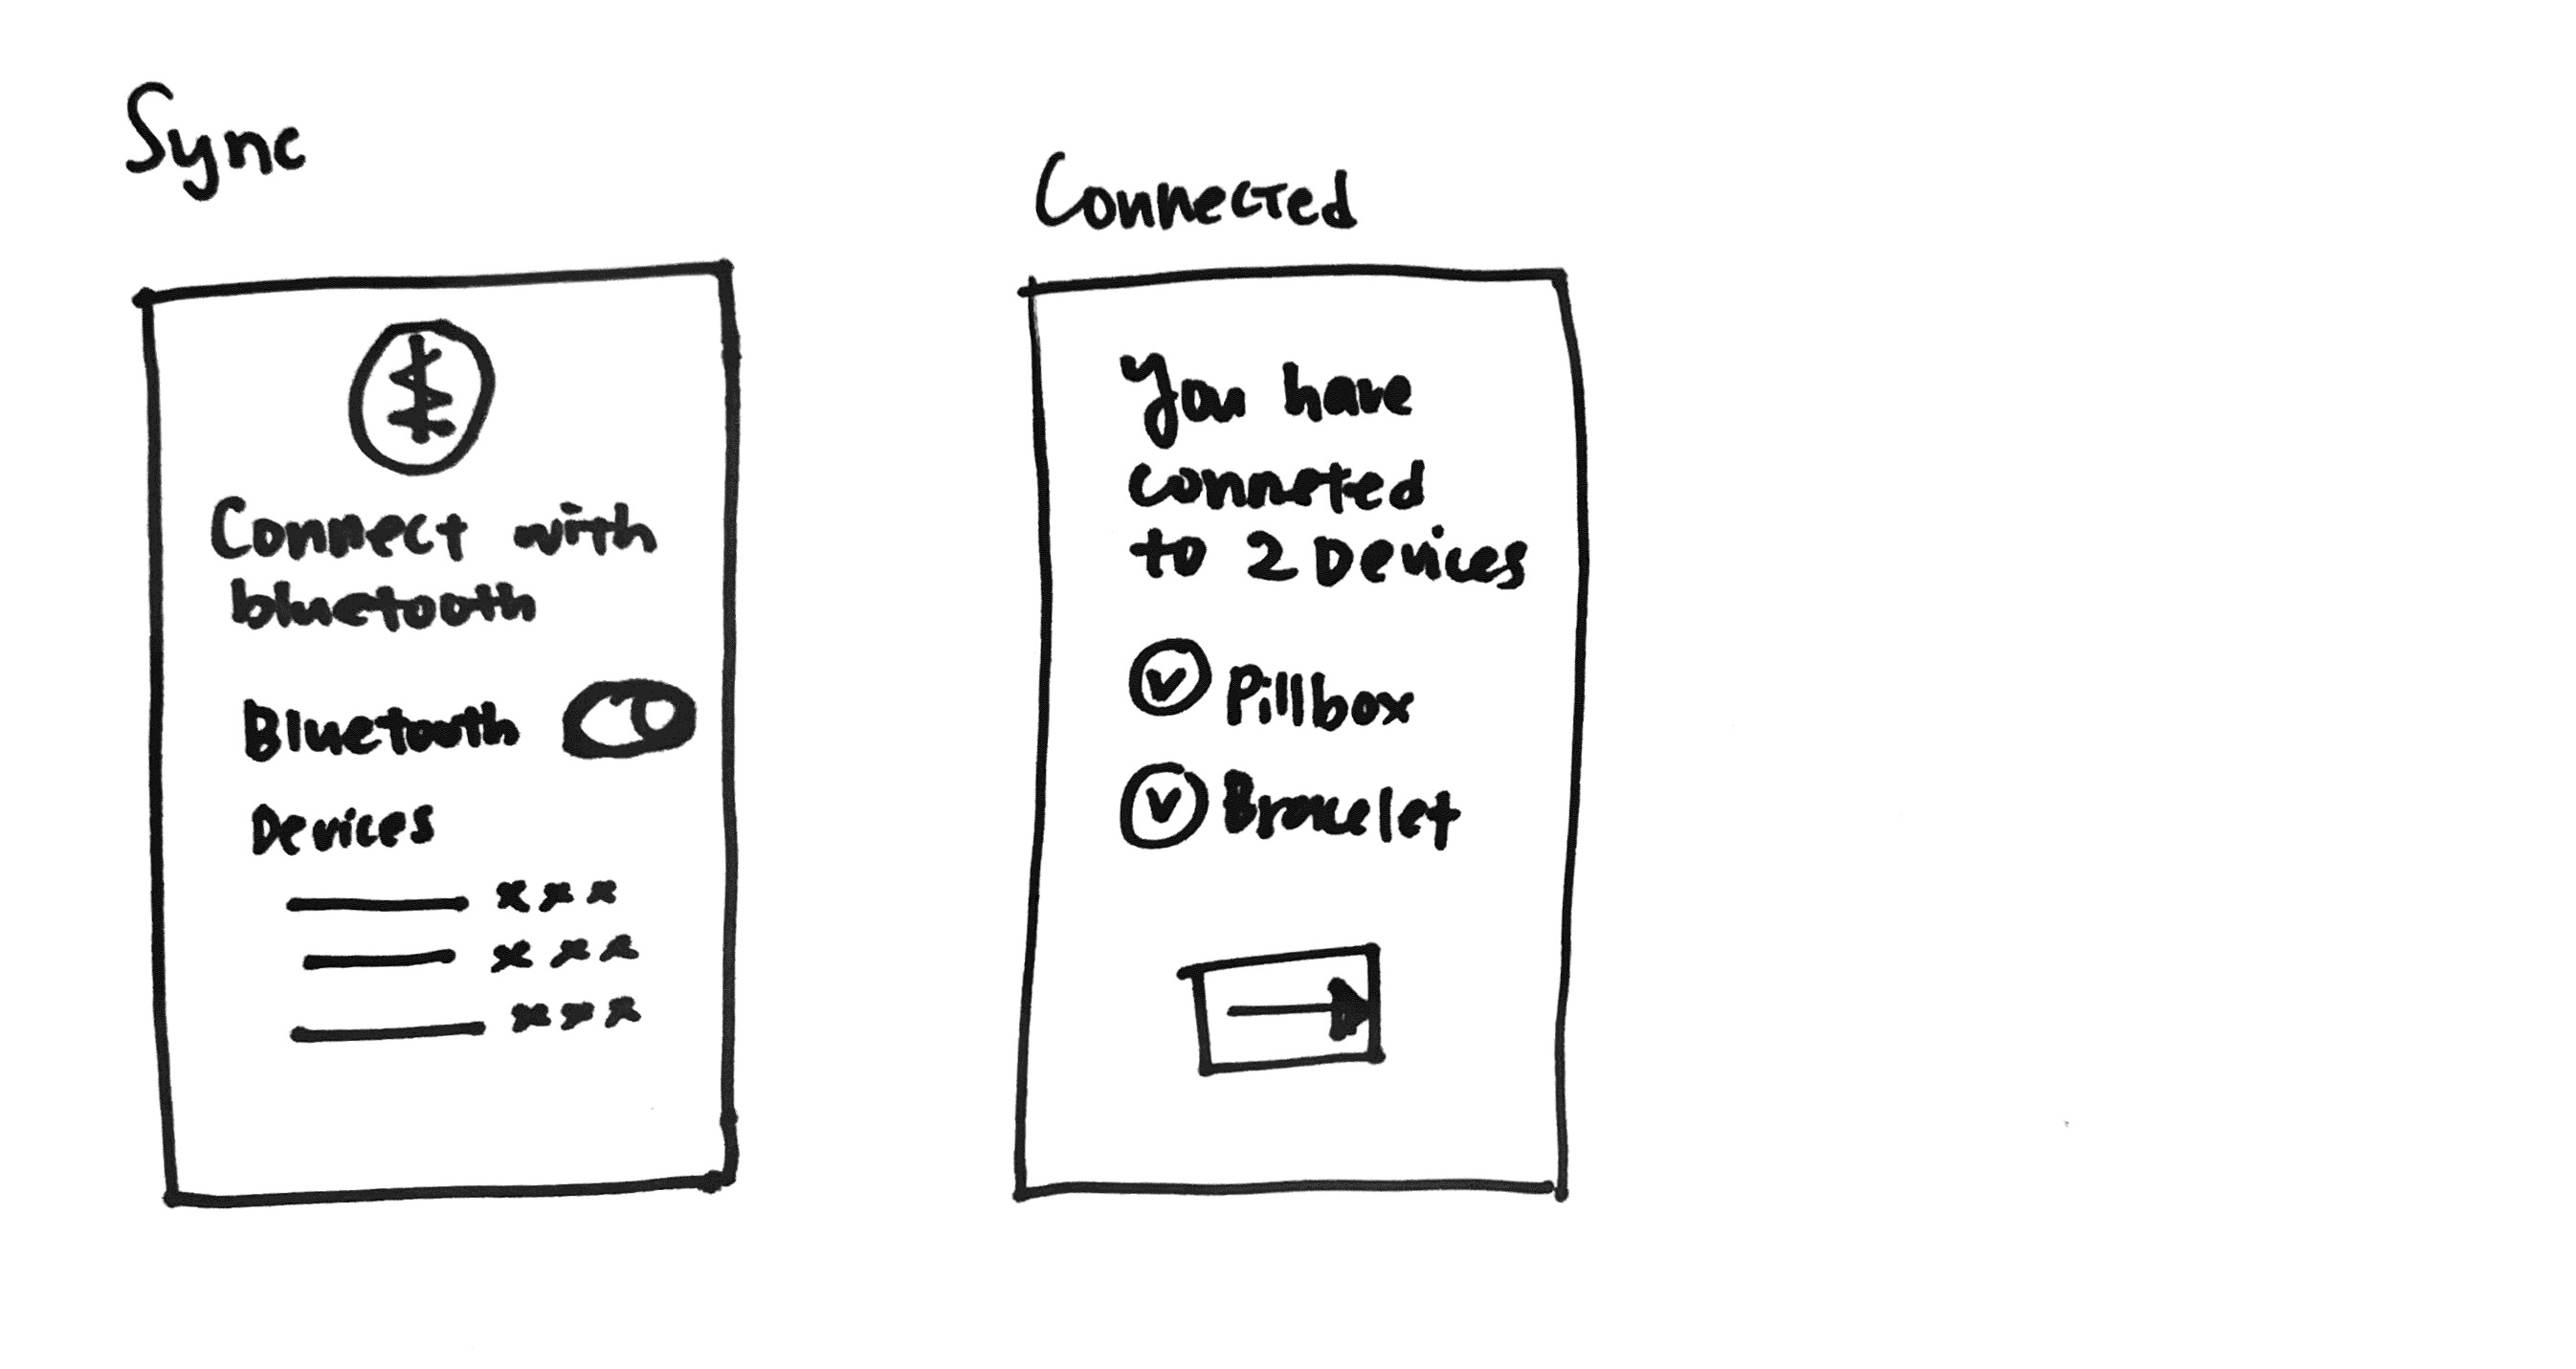 Sync
Connect with
bluetooth
Bluetooth
Devices
xxx
xxx
xxx
Connected
You have
conneted
to 2 Devices
Pillbox
Bracelet